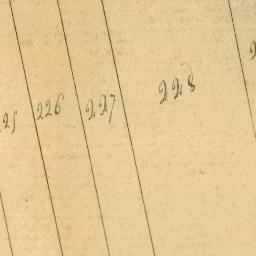 226
227
228